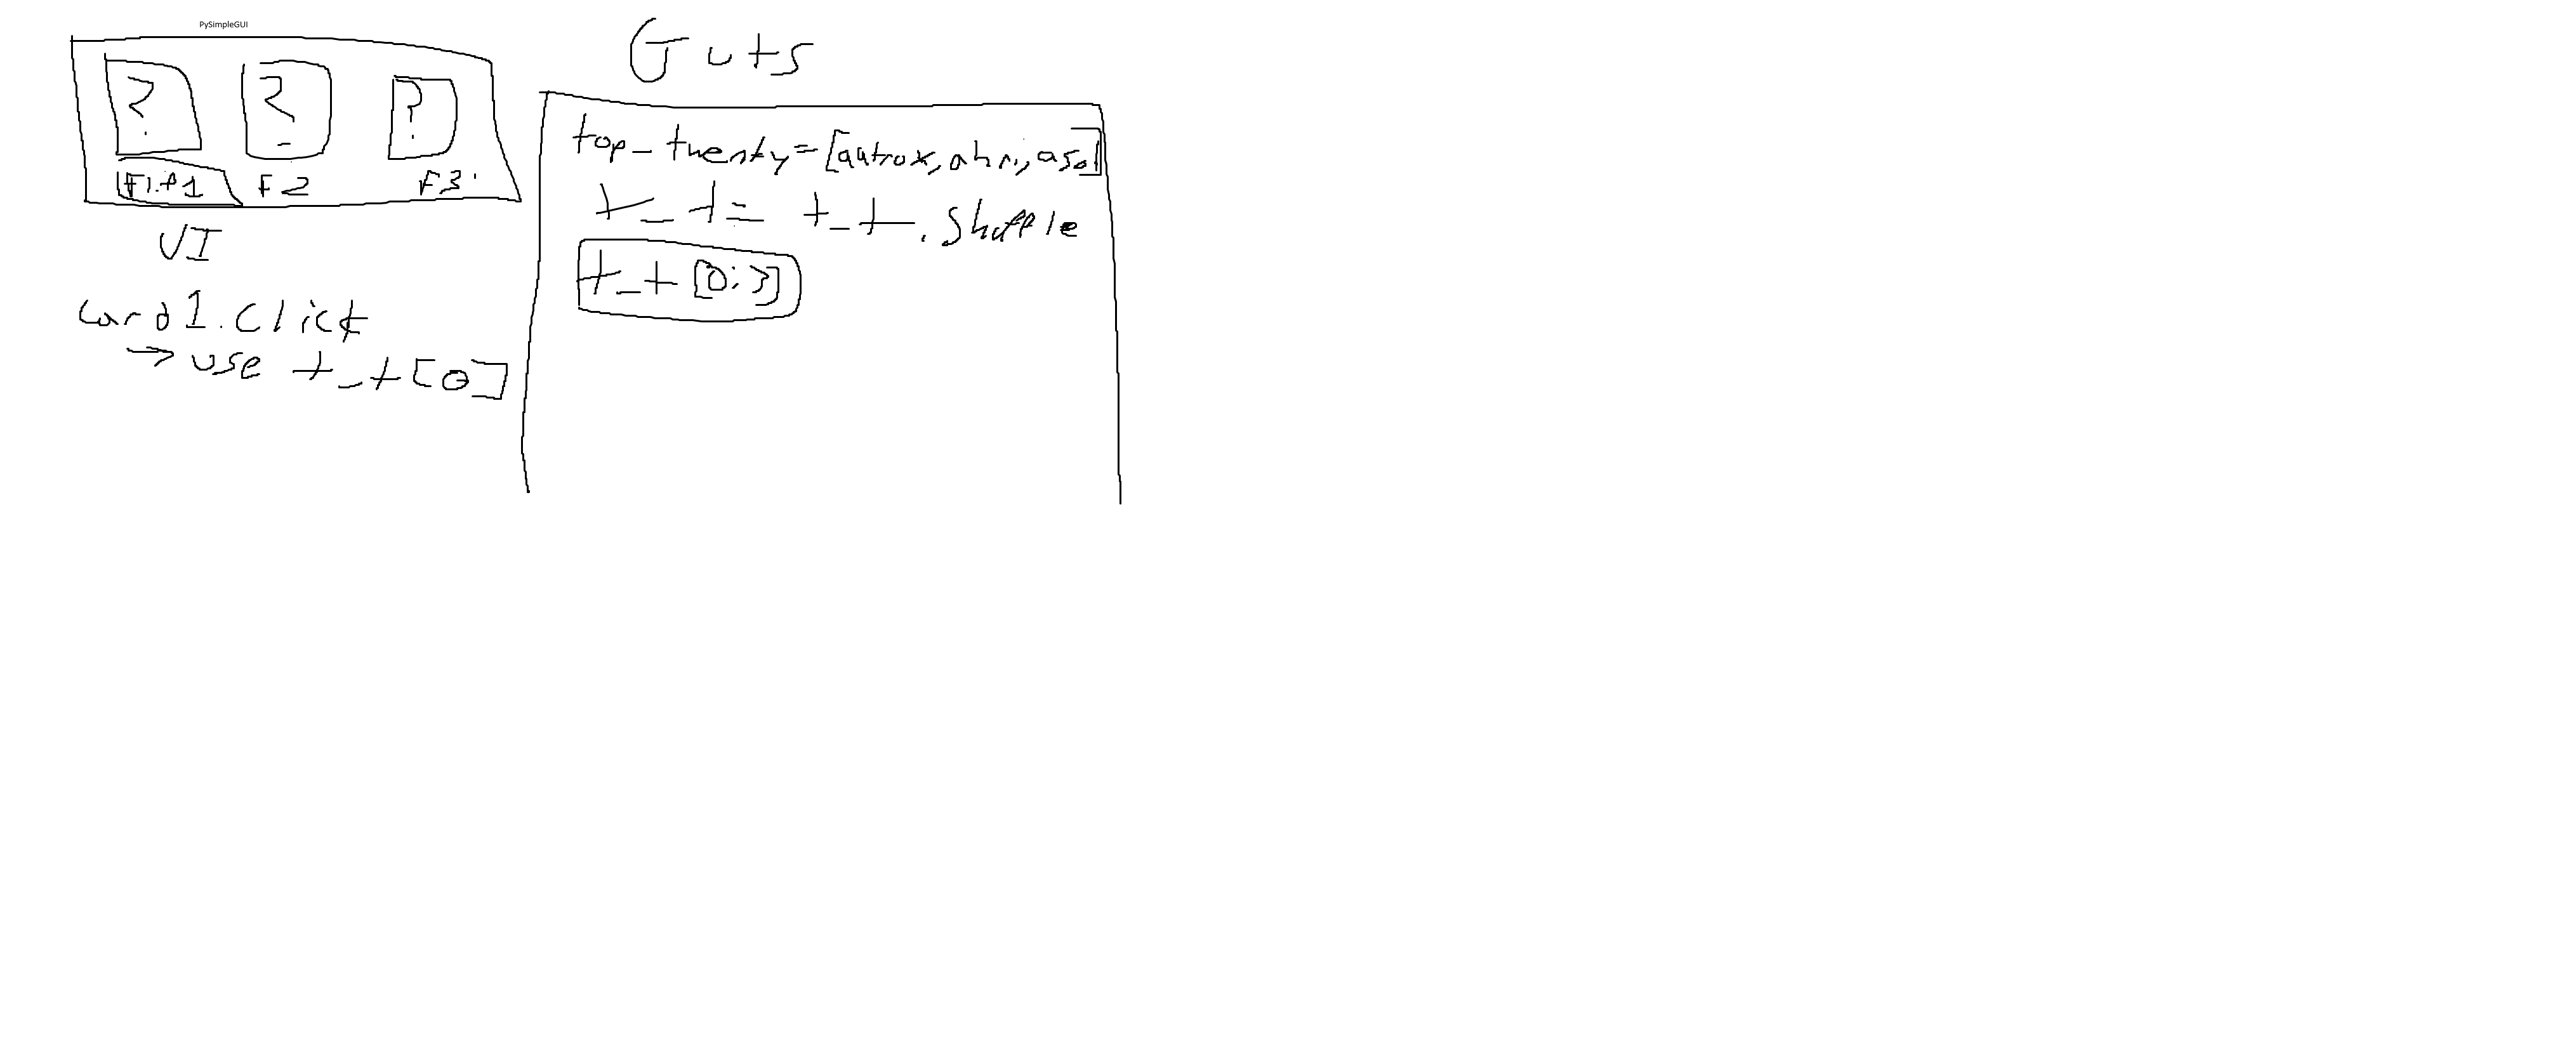 PySimpleGUI
? ? ?
Flip1 F2 F3
UI
card1.click
→ use t_t[0]
Guts
top_twenty=[aatrox, ahri, asol]
t_t = t_t.shuffle
t_t[0:3]